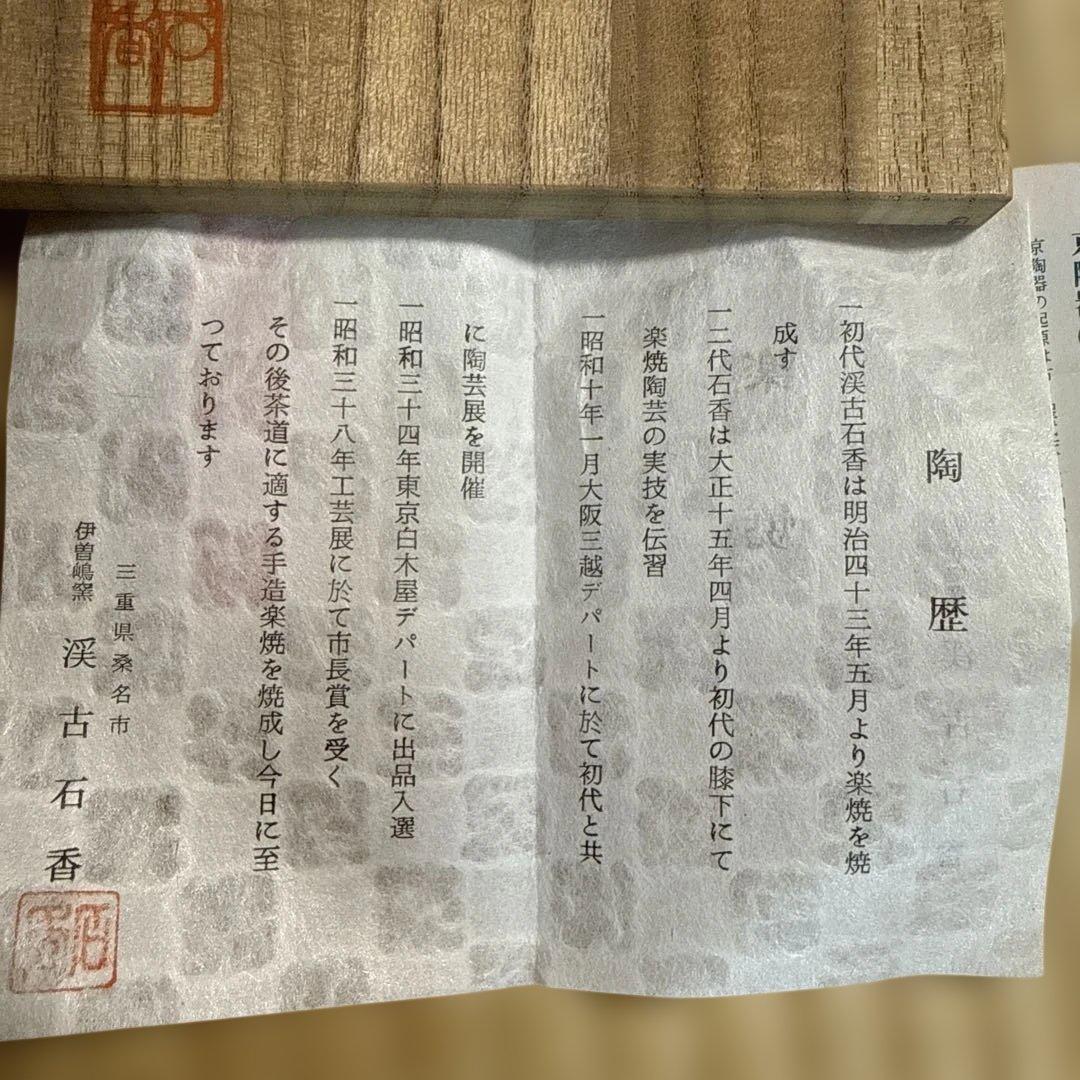 陶歴
一初代渓古石香は明治四十三年五月より楽焼を焼
成す
一二代石香は大正十五年四月より初代の膝下にて
楽焼陶芸の実技を伝習
一昭和十年一月大阪三越デパートに於て初代と共
に陶芸展を開催
一昭和三十四年東京白木屋デパートに出品入選
一昭和三十八年工芸展に於て市長賞を受く
その後茶道に適する手造楽焼を焼成し今日に至
つております
三重県桑名市
伊曽嶋窯 渓古石香
石香
京陶器の起源は